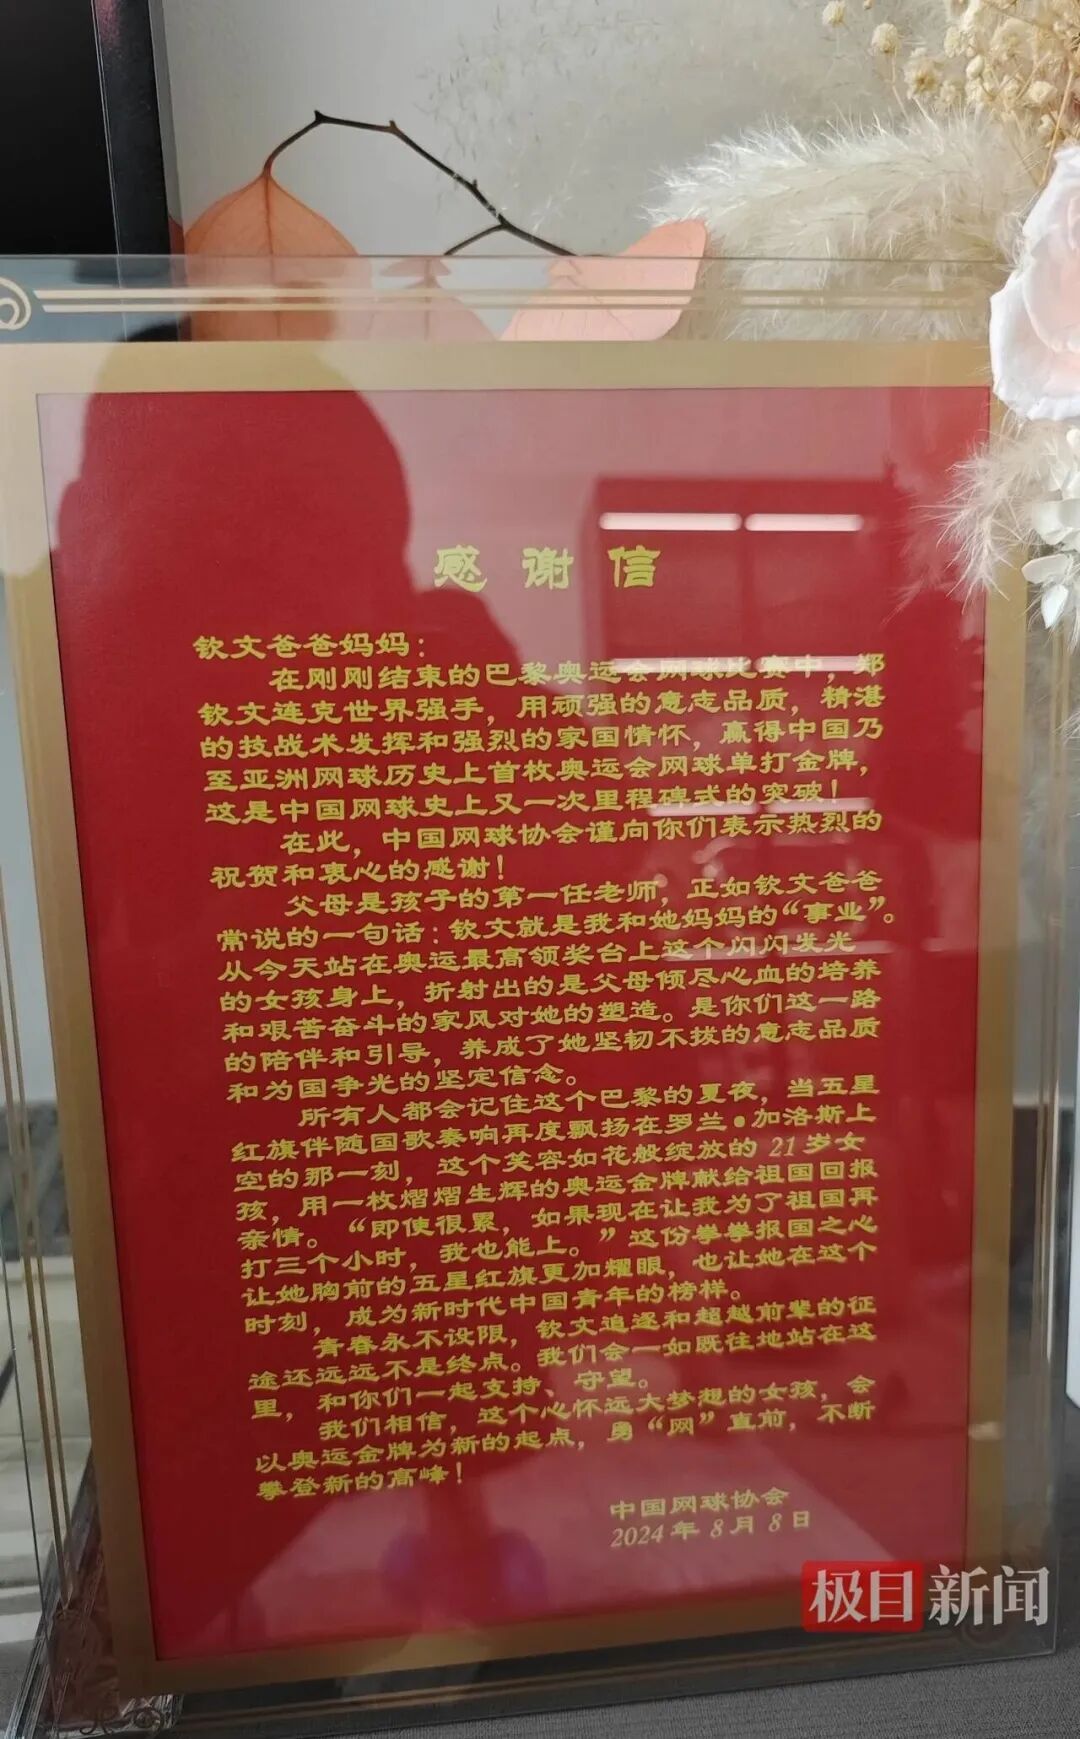 感谢信
钦文爸爸妈妈：
在刚刚结束的巴黎奥运会网球比赛中，郑
钦文连克世界强手，用顽强的意志品质，精湛
的技战术发挥和强烈的家国情怀，赢得中国乃
至亚洲网球历史上首枚奥运会网球单打金牌，
这是中国网球史上又一次里程碑式的突破！
在此，中国网球协会谨向你们表示热烈的
祝贺和衷心的感谢！
父母是孩子的第一任老师，正如钦文爸爸
常说的一句话：钦文就是我和她妈妈的“事业”。
从今天站在奥运最高领奖台上这个闪闪发光
的女孩身上，折射出的是父母倾尽心血的培养
和艰苦奋斗的家风对她的塑造。是你们这一路
的陪伴和引导，养成了她坚韧不拔的意志品质
和为国争光的坚定信念。
所有人都会记住这个巴黎的夏夜，当五星
红旗伴随国歌奏响再度飘扬在罗兰•加洛斯上
空的那一刻，这个笑容如花般绽放的21岁女
孩，用一枚熠熠生辉的奥运金牌献给祖国回报
亲情。“即使很累，如果现在让我为了祖国再
打三个小时，我也能上。”这份拳拳报国之心
让她胸前的五星红旗更加耀眼，也让她在这个
时刻，成为新时代中国青年的榜样。
青春永不设限，钦文追逐和超越前辈的征
途还远远不是终点。我们会一如既往地站在这
里，和你们一起支持、守望。
我们相信，这个心怀远大梦想的女孩，会
以奥运金牌为新的起点，勇“网”直前，不断
攀登新的高峰！
中国网球协会
2024年8月8日
极目新闻